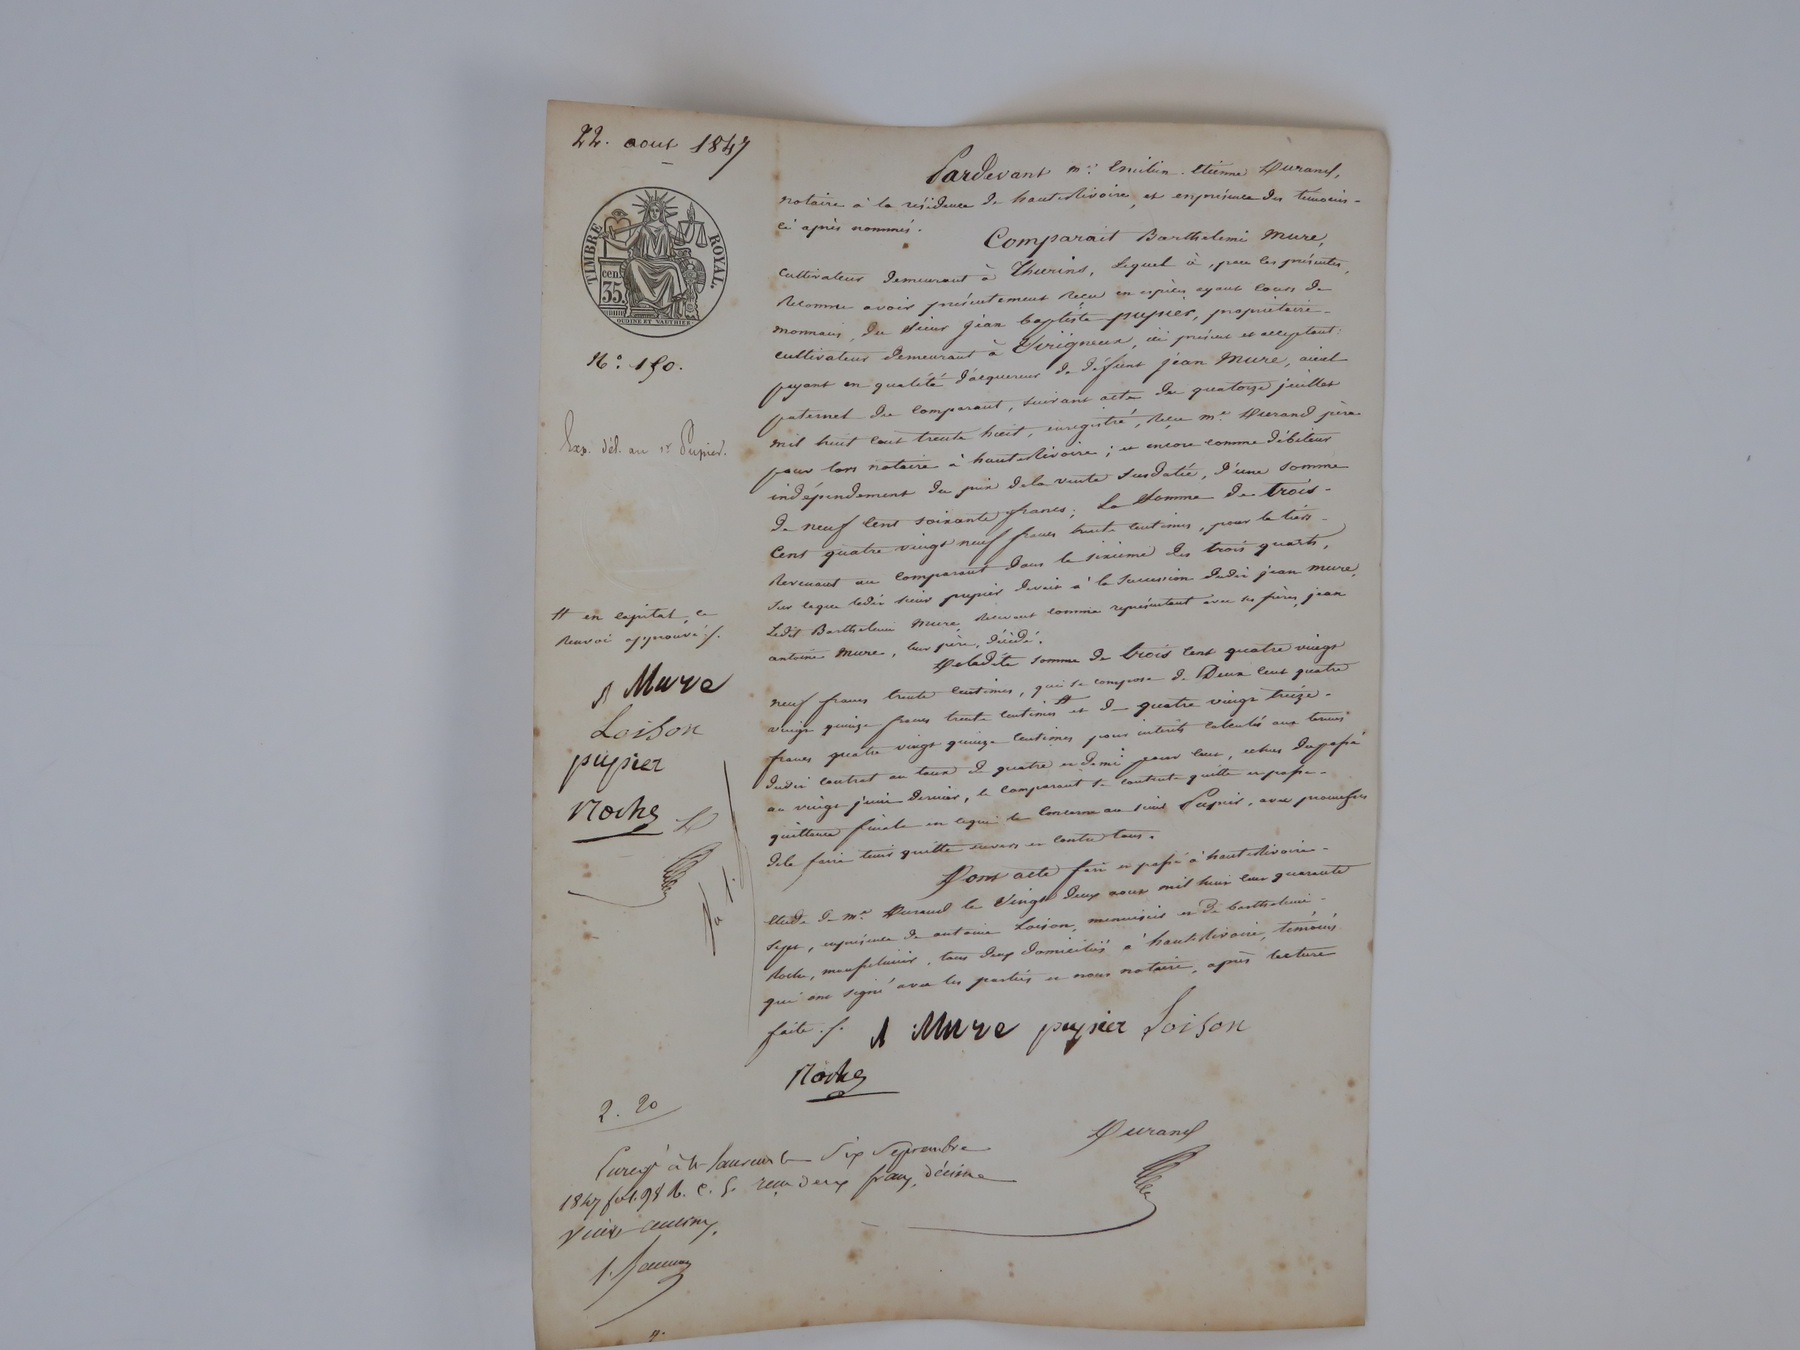 22. aout 1847
TIMBRE ROYAL.
cen. 35.
OUDINÉ ET VAUTHIER
N.° 150.
Exp. dél. au Sr Pupier.
Pardevant me. Emilien Etienne Durand,
notaire à la résidence de hauterivoire, et en présence des temoins
ci après nommés.
Comparait Barthelemi Mure,
cultivateur demeurant à Thurins, lequel à, par les présentes,
Reconnu avoir présentement Reçu en espèces ayant cours de
monnaie, du Sieur jean baptiste pupier, propriétaire
cultivateur demeurant à Virigneux, ici présent et acceptant:
payant en qualité d'acquereur de défunt jean Mure, aieul
paternel du comparant, suivant acte du quatorze juillet
mil huit cent trente huit, enregistré, Reçu me. Durand père
pour lors notaire à hauterivoire; et encore comme débiteur
indépendement du prix de la vente susdatée, d'une somme
de neuf cent soixante francs; La Somme de trois
Cent quatre vingt neuf francs trente centimes, pour le tiers
Revenant au comparant dans le sixieme des trois quarts,
sur ce que ledit sieur pupier devait à la succession dudit jean mure,
Ledit Barthelemi Mure, Recevant comme représentant avec ses frères, jean
antoine Mure, leur père, décédé.
De ladite somme de trois cent quatre vingt
neuf francs trente centimes, qui se compose de Deux cent quatre
vingt quinze francs trente centimes # et de quatre vingt treize
francs quatre vingt quinze centimes pour intérêts calculés aux termes
dudit contrat au taux de quatre et demi pour cent, echus du passé
au vingt juin dernier, le comparant se contente quitte et passe
quittance finale en ce qui le concerne au sieur Pupier, avec promesse
de le faire tenir quitte envers et contre tous.
Dont acte fait et passé à hauterivoire
etude de me. Durand le Vingt deux aout mil huit cent quarante
sept, en présence de antoine Loison, menuisier et de barthelemi
Roche, tous deux domiciliés à hauterivoire, témoins
qui ont signé avec les parties et nous notaire, après lecture
faite ./.
# en capital, ce
Renvoi approuvé ./.
Mure
Loison
pupier
Roche
D
Mure pupier Loison
Roche
Durand
2. 20
Enregé à St Laurent le Six Septembre
1847 fol. 98 R. C. 5. reçu deux francs, décime
vingt centimes.